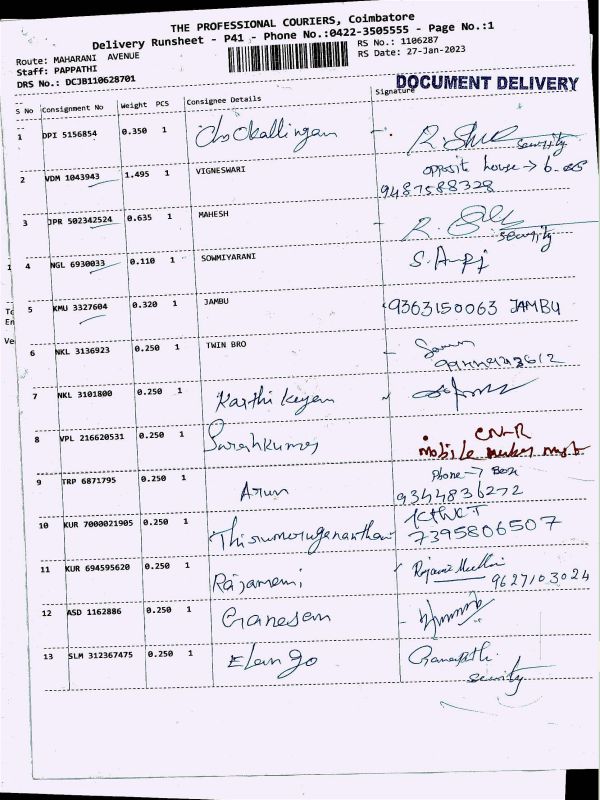 THE PROFESSIONAL COURIERS, Coimbatore
Delivery Runsheet - P41 - Phone No.:0422-3505555 - Page No.:1
Route: MAHARANI AVENUE
RS No.: 1106287
Staff: PAPPATHI
RS Date: 27-Jan-2023
DRS No.: DCJB110628701
DOCUMENT DELIVERY
S No Consignment No Weight PCS Consignee Details Signature
1 DPI 5156854 0.350 1 Chockallingam R.
security
opposite house → b.
2 VDM 1043943 1.495 1 VIGNESWARI 9487588328
3 JPR 502342524 0.635 1 MAHESH R.
security
4 NGL 6930033 0.110 1 SOWMIYARANI S.
5 KMU 3327604 0.320 1 JAMBU 9363150063 JAMBU
6 NKL 3136923 0.250 1 TWIN BRO
7 NKL 3101800 0.250 1 Karthikeyan
8 VPL 216620531 0.250 1 Sarathkumar
mobile
Phone → Box
9 TRP 6871795 0.250 1 Arun 9344836272
10 KUR 7000021905 0.250 1 7395806507
11 KUR 694595620 0.250 1 Rajamani
9627103024
12 ASD 1162886 0.250 1 Ganesan
13 SLM 312367475 0.250 1 Elango Ganapathi
security